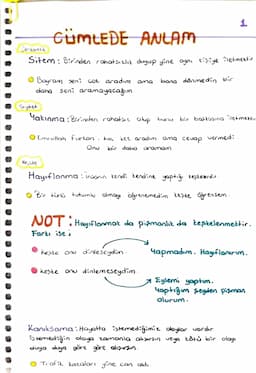 1
CÜMLEDE ANLAM
Sitem: Birinden rahatsızlık duyup yine aynı kişiye iletmektir
Bayram seni çok aradım ama bana dönmedin bir
daha seni aramayacağım
Şikayet
Yakınma: Birinden rahatsız olup bunu bir başkasına iletmek
Emrullah Furkan'ı kaç kez aradım ama cevap vermedi
Onu bir daha aramam
Keşke
Hayıflanma: insanın kendi kendine yaptığı
Bir türlü tutumlu olmayı öğrenemedim keşke öğrensem
NOT: Hayıflanma da pişmanlık da keşkelenmektir.
Farkı ise:
keşke onu dinleseydim
Yapmadım. Hayıflanırım.
keşke onu dinlemeseydim
Eylemi yaptım.
Yaptığım şeyden pişman
olurum.
Kanıksama: Hayatta istemediğimiz olaylar vardır
İstemediğin olaya zamanla alışırsın veya kötü bir olayı
duya duya göre göre alışırsın
Trafik kazaları yine can aldı